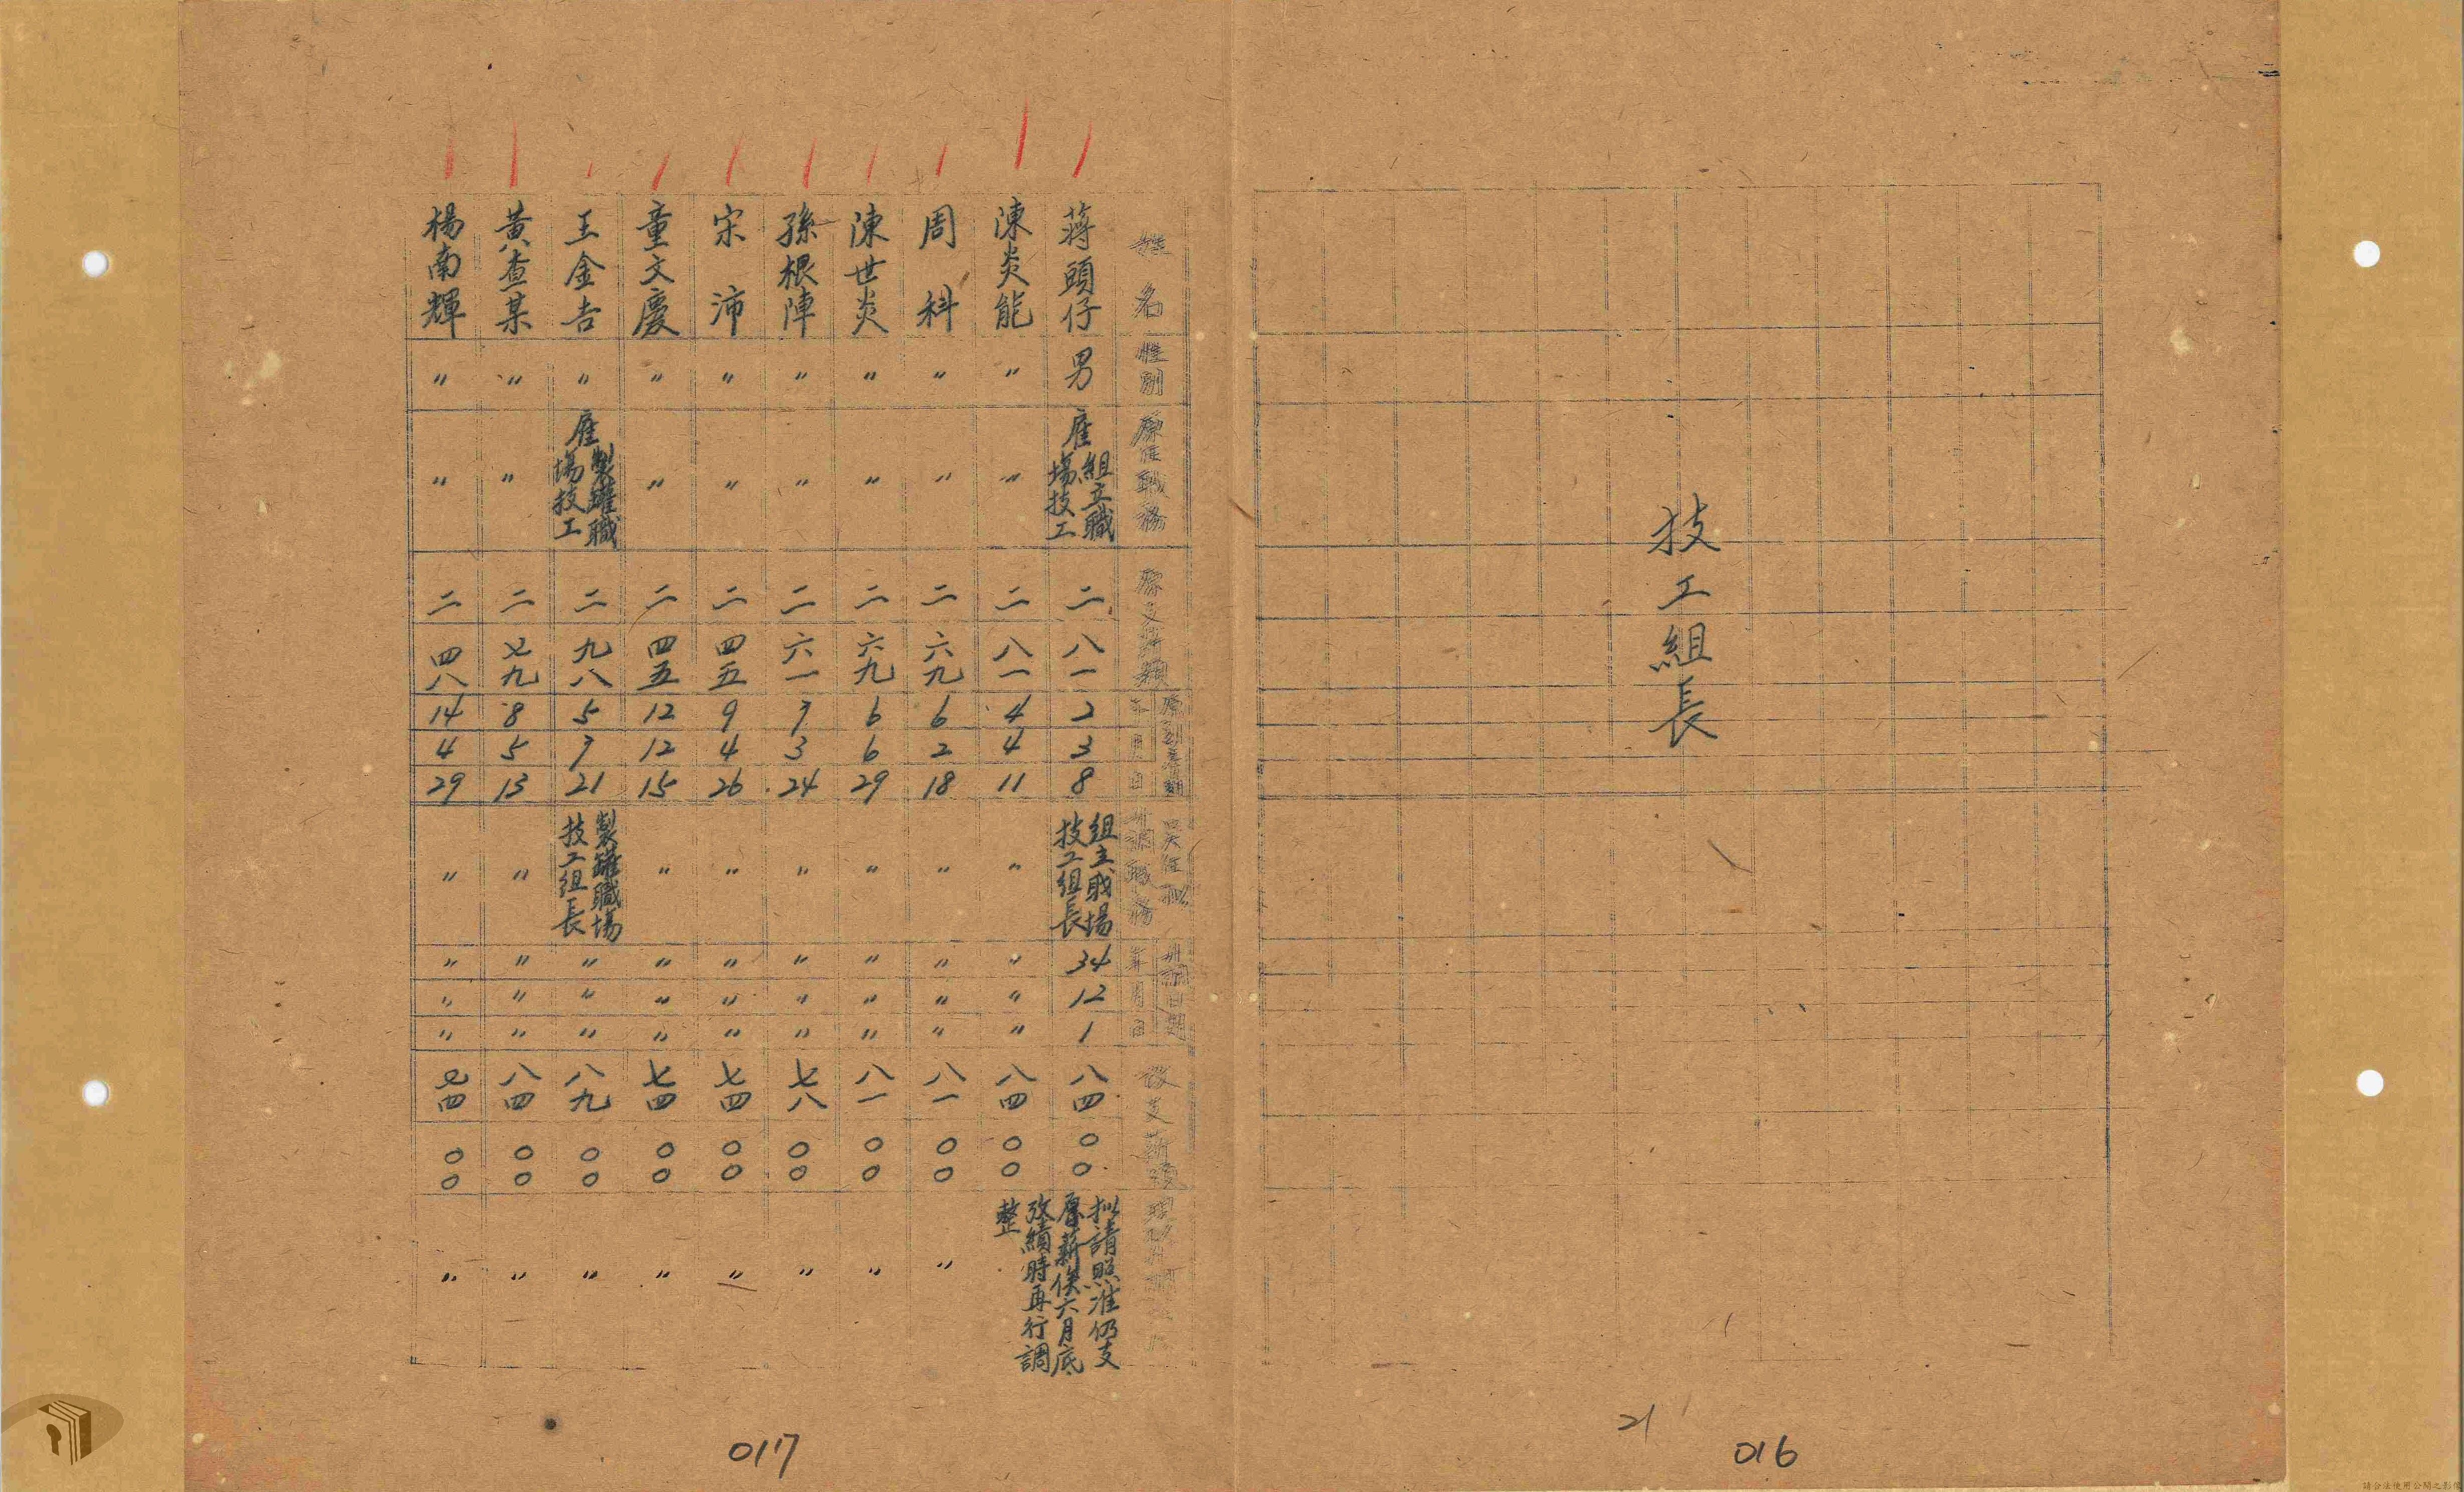 技工組長
21
016
姓名 性別 原任職務 原支薪額 原到差日期 年 月 日 吳任拟升調職務 升調日期 年 月 日 改支薪
蔣頭仔 男 雇組立職場技工 二 八一 2 3 8 組立職場技工組長 34 12 1 八四 〇〇 拟請照准仍支原薪俟六月底攷績時再行調整
陳炎能 〃 〃 二 八一 4 4 11 〃 〃 〃 〃 八四 〇〇
周科 〃 〃 二 六九 6 2 18 〃 〃 〃 〃 八一 〇〇 〃
陳世炎 〃 〃 二 六九 6 6 29 〃 〃 〃 〃 八一 〇〇 〃
孫根陣 〃 〃 二 六一 7 3 24 〃 〃 〃 〃 七八 〇〇 〃
宋沛 〃 〃 二 四五 9 4 26 〃 〃 〃 〃 七四 〇〇 〃
童文慶 〃 〃 二 四五 12 12 15 〃 〃 〃 〃 七四 〇〇 〃
王金吉 〃 雇製罐職場技工 二 九八 5 7 21 製罐職場技工組長 〃 〃 〃 八九 〇〇 〃
黃查某 〃 〃 二 七九 8 5 13 〃 〃 〃 〃 八四 〇〇 〃
楊南輝 〃 〃 二 四八 14 4 29 〃 〃 〃 〃 七四 〇〇 〃
017
請合法使用公開之影像